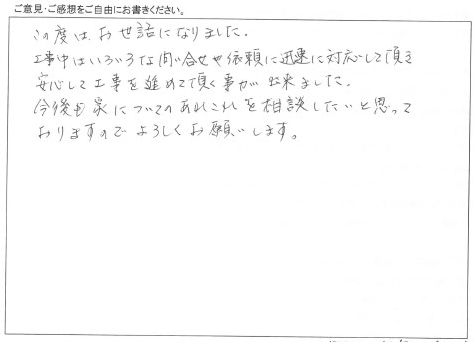 ご意見・ご感想をご自由にお書きください。
この度は、お世話になりました。
工事中はいろいろな問い合せや依頼に迅速に対応して頂き
安心して工事を進めて頂く事が出来ました。
今後も家についてのあれこれを相談したいと思って
おりますのでよろしくお願いします。